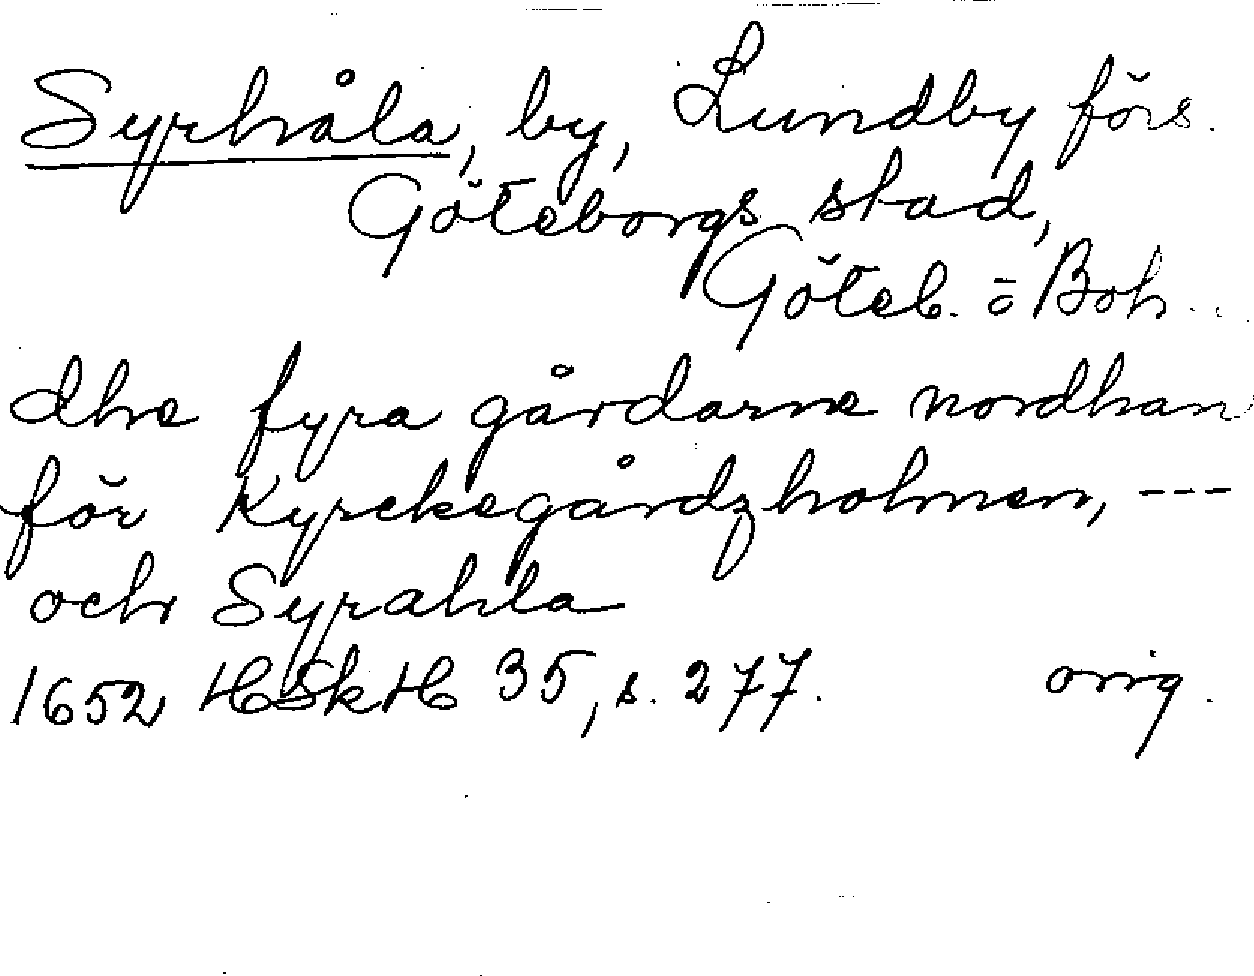 Syrhåla, by, Lundby förs.
Göteborgs stad,
Göteb. o Boh.
dhe fyra gårdarne nordhan
för Kyrckegårdzholmen, ---
och Syrahla
1652 HSkH 35, s. 277. orig.